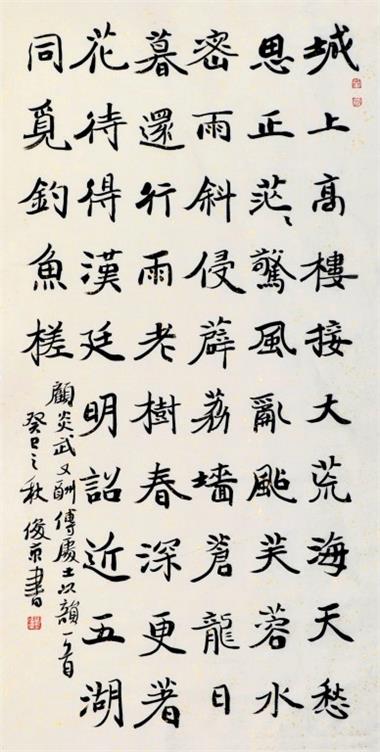 城上高樓接大荒海天愁
思正茫〻驚風亂颭芙蓉水
密雨斜侵薜荔墻蒼龍日
暮還行雨老樹春深更著
花待得漢廷明詔近五湖
同覓釣魚槎
顧炎武又酬傅處士次韻一首
癸巳之秋俊書